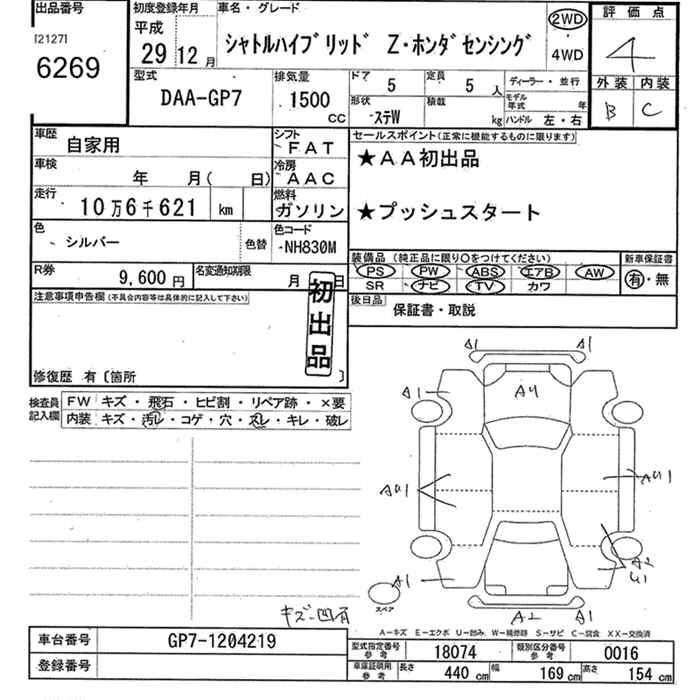 出品番号
[2127]
6269
初度登録年月
平成
29 12 月
車名・グレード
シャトルハイブリッド Z・ホンダセンシング
2WD
4WD
評価点
4
外装 内装
B C
型式
DAA-GP7
排気量
1500
cc
ドア 5
定員 5 人
ディーラー・並行
形状
ステW
積載
kg
モデル年式 年
ハンドル 左・右
車歴
自家用
シフト
FAT
セールスポイント(正常に機能するものに限ります)
★AA初出品
★プッシュスタート
車検
年 月( 日)
冷房
AAC
走行
10万6千621 km
燃料
ガソリン
色
シルバー
色替
色コード
NH830M
装備品 (純正品に限り○をつけてください)
PS PW ABS エアB AW
SR ナビ TV カワ
新車保証書
有・無
R券
9,600 円
名変通知期限
月 日
後日品
保証書・取説
注意事項申告欄(不具合内容等は具体的に記入して下さい)
初出品
修復歴 有〔箇所
検査員記入欄
FW キズ・飛石・ヒビ割・リペア跡・×要
内装 キズ・汚レ・コゲ・穴・スレ・キレ・破レ
A1 A1
A1 A4
AU1 AU1
A2
U1
A1
スペア
A2 A1
キズ凹有
A-キズ E-エクボ U-凹み W-補修跡 S-サビ C-腐食 XX-交換済
車台番号
GP7-1204219
登録番号
型式指定番号 参考
18074
類別区分番号 参考
0016
車庫証明用 参考
長さ 440 cm
幅 169 cm
高さ 154 cm